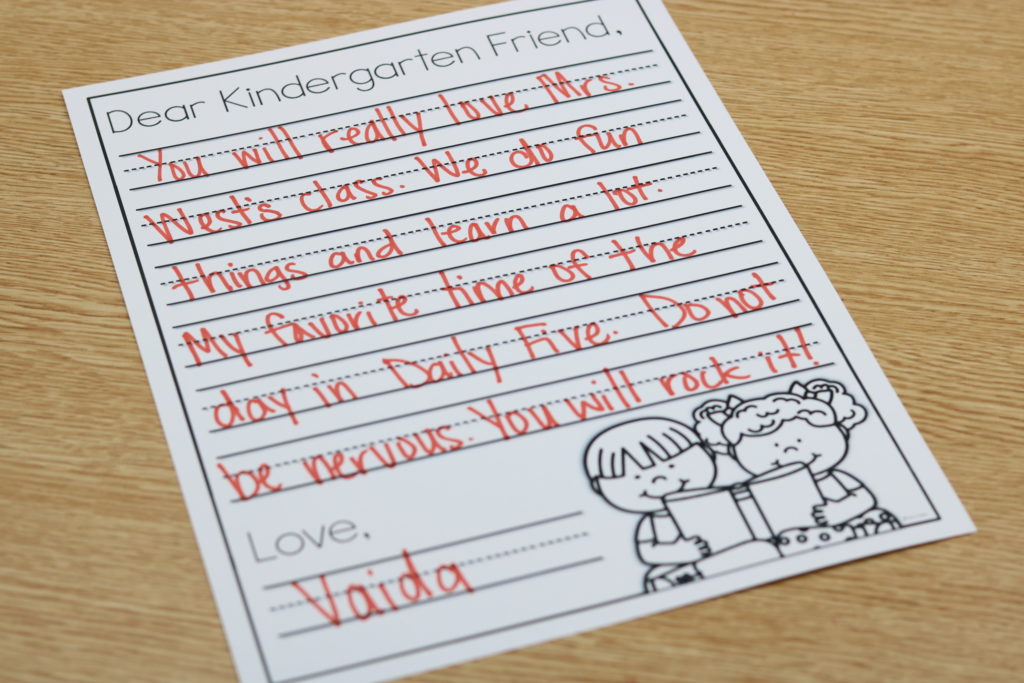 Dear Kindergarten Friend,
You will really love Mrs.
West's class. We do fun
things and learn a lot.
My favorite time of the
day in Daily Five. Do not
be nervous. You will rock it!
Love,
Vaida